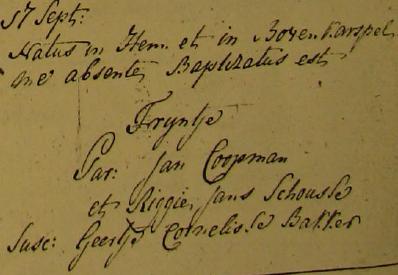 17 Sept:
Natus in Hem. et in Bovenkarspel
me absente, Baptizatus est
Tryntje
Par: Jan Coopman
et Riggie, Jans Schousse
Susc: Geertje Cornelisse Bakker